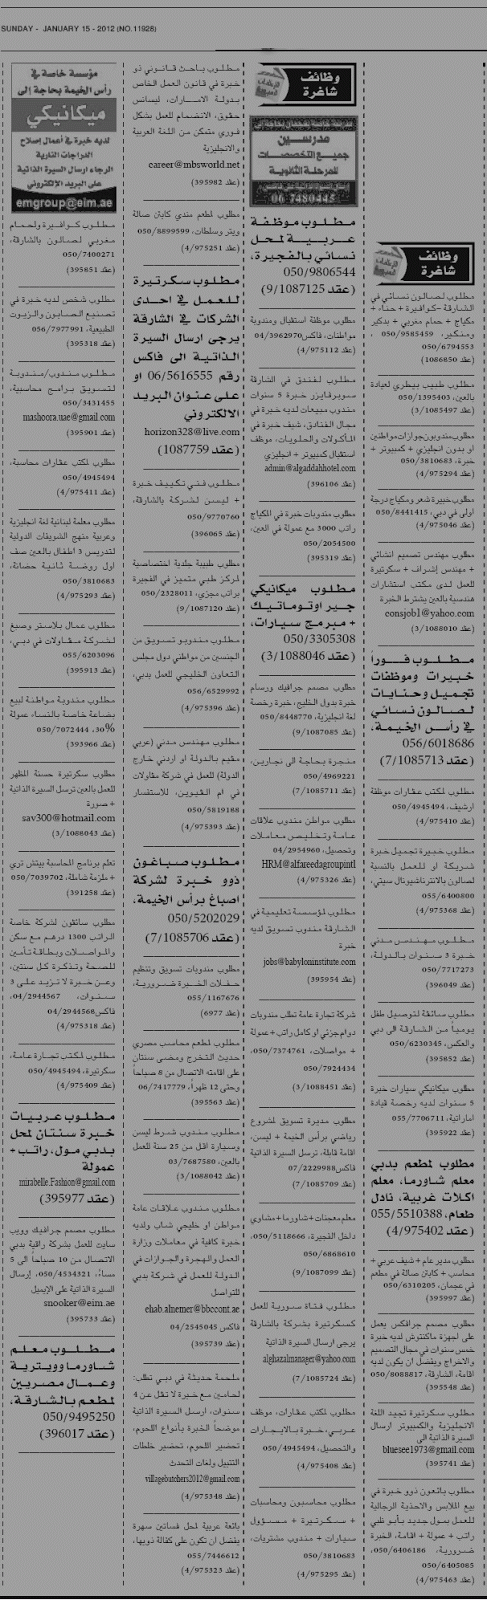 SUNDAY - JANUARY 15 - 2012 (NO.11928)
وظائف
شاغرة
مطلوب لصالون نسائي في
الشارقة -كوافيرة + حناء +
مكياج + حمام مغربي + بدكير
ومنكير، 050/9585459 ،
050/6794553
(عقد 1086850)
مطلوب طبيب بيطري لعيادة
بالعين، 050/1395403
(عقد 3/1085497)
مطلوب مندوبون جوازات مواطنين
او بدون انجليزي + كمبيوتر +
خبرة، 050/3810683
(عقد 4/975294)
مطلوب خبيرة شعر ومكياج درجة
اولى في دبي، 050/8441415
(عقد 4/975046)
مطلوب مهندس تصميم انشائي
+ مهندس إشراف + سكرتيرة
للعمل لدى مكتب استشارات
هندسية بالعين يشترط الخبرة
consjob1@yahoo.com
(عقد 3/1088010)
مطلوب فوراً
خبيرات وموظفات
تجميل وحنايات
لصالون نسائي
في رأس الخيمة،
056/6018686
(عقد 7/1085713)
مطلوب لمكتب عقارات موظفة
ارشيف، 050/4945494
(عقد 4/975410)
مطلوب خبيرة تجميل خبرة
شريكة او للعمل بالنسبة
لصالون بالانترناشيونال سيتي،
055/6400800
(عقد 4/975368)
مطلوب مهندس مدني
خبرة 3 سنوات بالدولة،
050/7717273
(عقد 396049)
مطلوب سائقة لتوصيل طفل
يومياً من الشارقة الى دبي
والعكس، 050/6230345
(عقد 395852)
مطلوب ميكانيكي سيارات خبرة
5 سنوات لديه رخصة قيادة
اماراتية، 055/7706711
(عقد 395922)
مطلوب لمطعم بدبي
معلم شاورما، معلم
اكلات غربية، نادل
طعام، 055/5510388
(عقد 4/975402)
مطلوب مدير عام + شيف عربي +
محاسب + كابتن صالة في مطعم
في عجمان، 050/6310205
(عقد 395997)
مطلوب مصمم جرافكس يعمل
على اجهزة ماكنتوش لديه خبرة
خمس سنوات في مجال التصميم
والاخراج ويفضل ان يكون لديه
اقامة، الشارقة، 050/8088817
(عقد 393548)
مطلوب سكرتيرة تجيد اللغة
الانجليزية والكمبيوتر ارسال
السيرة الذاتية الى
bluesee1973@gmail.com
(عقد 395741)
مطلوب بائعون ذوو خبرة في
بيع الملابس والاحذية الرجالية
للعمل بمول جديد بأبو ظبي
راتب + عمولة + اقامة، الخبرة
ضرورية، 050/6406186،
050/6405085
(عقد 4/975463)
وظائف
شاغرة
مدرسين
جميع التخصصات
للمرحلة الثانوية
06 7480445
مطلوب موظفة
عربية لمحل
نسائي بالفجيرة،
050/9806544
(عقد 9/1087125)
مطلوب موظفة استقبال ومندوبة
مواطنات، فاكس04/3962970
(عقد 4/975112)
مطلوب لفندق في الشارقة
سوبرفايزر خبرة 5 سنوات
مندوب مبيعات لديه خبرة في
مجال الفنادق، شيف خبرة في
المأكولات والحلويات، موظف
استقبال كمبيوتر + انجليزي
admin@algaddahhotel.com
(عقد 396106)
مطلوب مندوبات خبرة في المكياج
راتب 3000 مع عمولة في العين،
050/2054500
(عقد 395319)
مطلوب ميكانيكي
جير اوتوماتيك
+ مبرمج سيارات،
050/3305308
(عقد 3/1088046)
مطلوب مصمم جرافيك ورسام
خبرة بدول الخليج، خبرة رخصة
لغة انجليزية، 050/8448770
(عقد 9/1087085)
منجرة بحاجة الى نجارين،
050/4969221
(عقد 7/1085711)
مطلوب مواطن مندوب علاقات
عامة وتخليص معاملات
وتحصيل، 04/2954960
HRM@alfareedagroupintl
(عقد 4/975326)
مطلوب لمؤسسة تعليمية في
الشارقة مندوب تسويق لديه
خبرة
jobs@babyloninstitute.com
(عقد 395954)
شركة تجارة عامة تطلب مندوبات
دوام جزئي او كامل راتب + عمولة
+ مواصلات، 050/7374761،
050/7924434
(عقد 3/1088451)
مطلوب مديرة تسويق لمشروع
رياضي برأس الخيمة + ليسن،
اقامة قابلة، ترسل السيرة الذاتية
فاكس07/2229988
(عقد 7/1085709)
معلم معجنات + شاورما + مشاوي
داخل الفجيرة، 050/5118666،
050/6868610
(عقد 9/1087099)
مطلوب فتاة سورية للعمل
كسكرتيرة بشركة بالشارقة
يرجى ارسال السيرة الذاتية
alghazalmanager@yahoo.com
(عقد 7/1085724)
مطلوب لمكتب عقارات، موظف
عربي، خبرة بالايجارات
والتحصيل، 050/4945494
(عقد 4/975408)
مطلوب محاسبون ومحاسبات
+ سكرتيرة + مسؤول
سيارات + مندوب مشتريات،
050/3810683
(عقد 4/975295)
مطلوب باحث قانوني ذو
خبرة في قانون العمل الخاص
بدولة الامارات، ليسانس
حقوق، الانضمام للعمل بشكل
فوري متمكن من اللغة العربية
والانجليزية
career@mbsworld.net
(عقد 395982)
مطلوب لمطعم مندي كابتن صالة
ويتر وسلطات، 050/8899599
(عقد 4/975251)
مطلوب سكرتيرة
للعمل في احدى
الشركات في الشارقة
يرجى ارسال السيرة
الذاتية الى فاكس
رقم 06/5616555 او
على عنوان البريد
الالكتروني
horizon328@live.com
(عقد 1087759)
مطلوب فني تكييف خبرة
+ ليسن لشركة بالشارقة،
050/9770760
(عقد 396065)
مطلوب طبيبة جلدية اختصاصية
لمركز طبي متميز في الفجيرة
براتب مجزي، 050/2328011
(عقد 9/1087120)
مطلوب مندوبو تسويق من
الجنسين من مواطني دول مجلس
التعاون الخليجي للعمل بدبي،
056/6529992
(عقد 4/975396)
مطلوب مهندس مدني (عربي
مقيم بالدولة او اردني خارج
الدولة) للعمل في شركة مقاولات
في ام القيوين، للاستفسار
050/5819188
(عقد 4/975393)
مطلوب صباغون
ذوو خبرة لشركة
اصباغ برأس الخيمة،
050/5202029
(عقد 7/1085706)
مطلوب مندوبات تسويق وتنظيم
حفلات الخبرة ضرورية،
055/1167676
(عقد 6977)
مطلوب لمطعم محاسب مصري
حديث التخرج ومضى سنتان
على اقامته الاتصال من 8 صباحاً
وحتى 12 ظهراً، 06/7417779
(عقد 395563)
مطلوب مندوب شرط ليسن
وسيارة اقل من 25 سنة للعمل
بالعين، 03/7687580
(عقد 3/1088042)
مطلوب مندوب علاقات عامة
مواطن او خليجي شاب ولديه
خبرة كافية في معاملات وزارة
العمل والهجرة والجوازات في
الدولة للعمل في شركة بدبي
للتواصل
ehab.alnemer@bbccont.ae
فاكس 04/2545045
(عقد 395739)
ملحمة حديثة في دبي تطلب:
لحامين مع خبرة لا تقل عن 4
سنوات، ارسل السيرة الذاتية
موضحاً الخبرة بأنواع اللحوم،
تحضير اللحوم، تحضير خلطات
التتبيل ولغات التحدث
villagebutchers2012@gmail.com
(عقد 4/975348)
بائعة عربية لمحل فساتين سهرة
يفضل ان تكون على كفالة ذويها،
055/7446612
(عقد 4/975323)
مؤسسة خاصة في
رأس الخيمة بحاجة إلى
ميكانيكي
لديه خبرة في أعمال إصلاح
الدراجات النارية
الرجاء ارسال السيرة الذاتية
على البريد الإلكتروني
emgroup@eim.ae
مطلوب كوافيرة ولحمام
مغربي لصالون بالشارقة،
050/7400271
(عقد 395851)
مطلوب شخص لديه خبرة في
تصنيع الصابون والزيوت
الطبيعية، 056/7977991
(عقد 395318)
مطلوب مندوب/مندوبة
لتسويق برامج محاسبية،
050/3431455
mashoora.uae@gmail.com
(عقد 395901)
مطلوب لمكتب عقارات محاسبة،
050/4945494
(عقد 4/975411)
مطلوب معلمة لبنانية لغة انجليزية
وعربية منهج الشريقات الدولية
لتدريس 3 اطفال بالعين صف
اول روضة ثانية حضانة،
050/3810683
(عقد 4/975293)
مطلوب عمال بلاستر وصبغ
لشركة مقاولات في دبي،
055/6203096
(عقد 395913)
مطلوب مندوبة مواطنة لبيع
بضاعة خاصة بالنساء، عمولة
30%، 050/7072444
(عقد 395966)
مطلوب سكرتيرة حسنة المظهر
للعمل بالعين ترسل السيرة الذاتية
+ صورة
sav300@hotmail.com
(عقد 3/1088043)
تعلم برنامج المحاسبة بيتش تري
+ ملزمة شاملة، 050/7039702
(عقد 391258)
مطلوب سائقون لشركة خاصة
الراتب 1300 درهم مع سكن
والمواصلات وبطاقة تأمين
للصحة وتذكرة كل سنتين،
وعن خبرة لا تزيد على 3
سنوات، 04/2944567،
فاكس04/2944568
(عقد 4/975318)
مطلوب لمكتب تجارة عامة،
سكرتيرة، 050/4945494
(عقد 4/975409)
مطلوب عربيات
خبرة سنتان لمحل
بدبي مول، راتب +
عمولة
mirabelle.Fashion@gmail.com
(عقد 395977)
مطلوب مصمم جرافيك وويب
سايت للعمل بشركة راقية بدبي
الاتصال من 10 صباحاً الى 5
مساءً، 050/4534321، إرسال
السيرة الذاتية على الإيميل
snooker@eim.ae
(عقد 395733)
مطلوب معلم
شاورما وويترية
وعمال مصريين
لمطعم بالشارقة،
050/9495250
(عقد 396017)